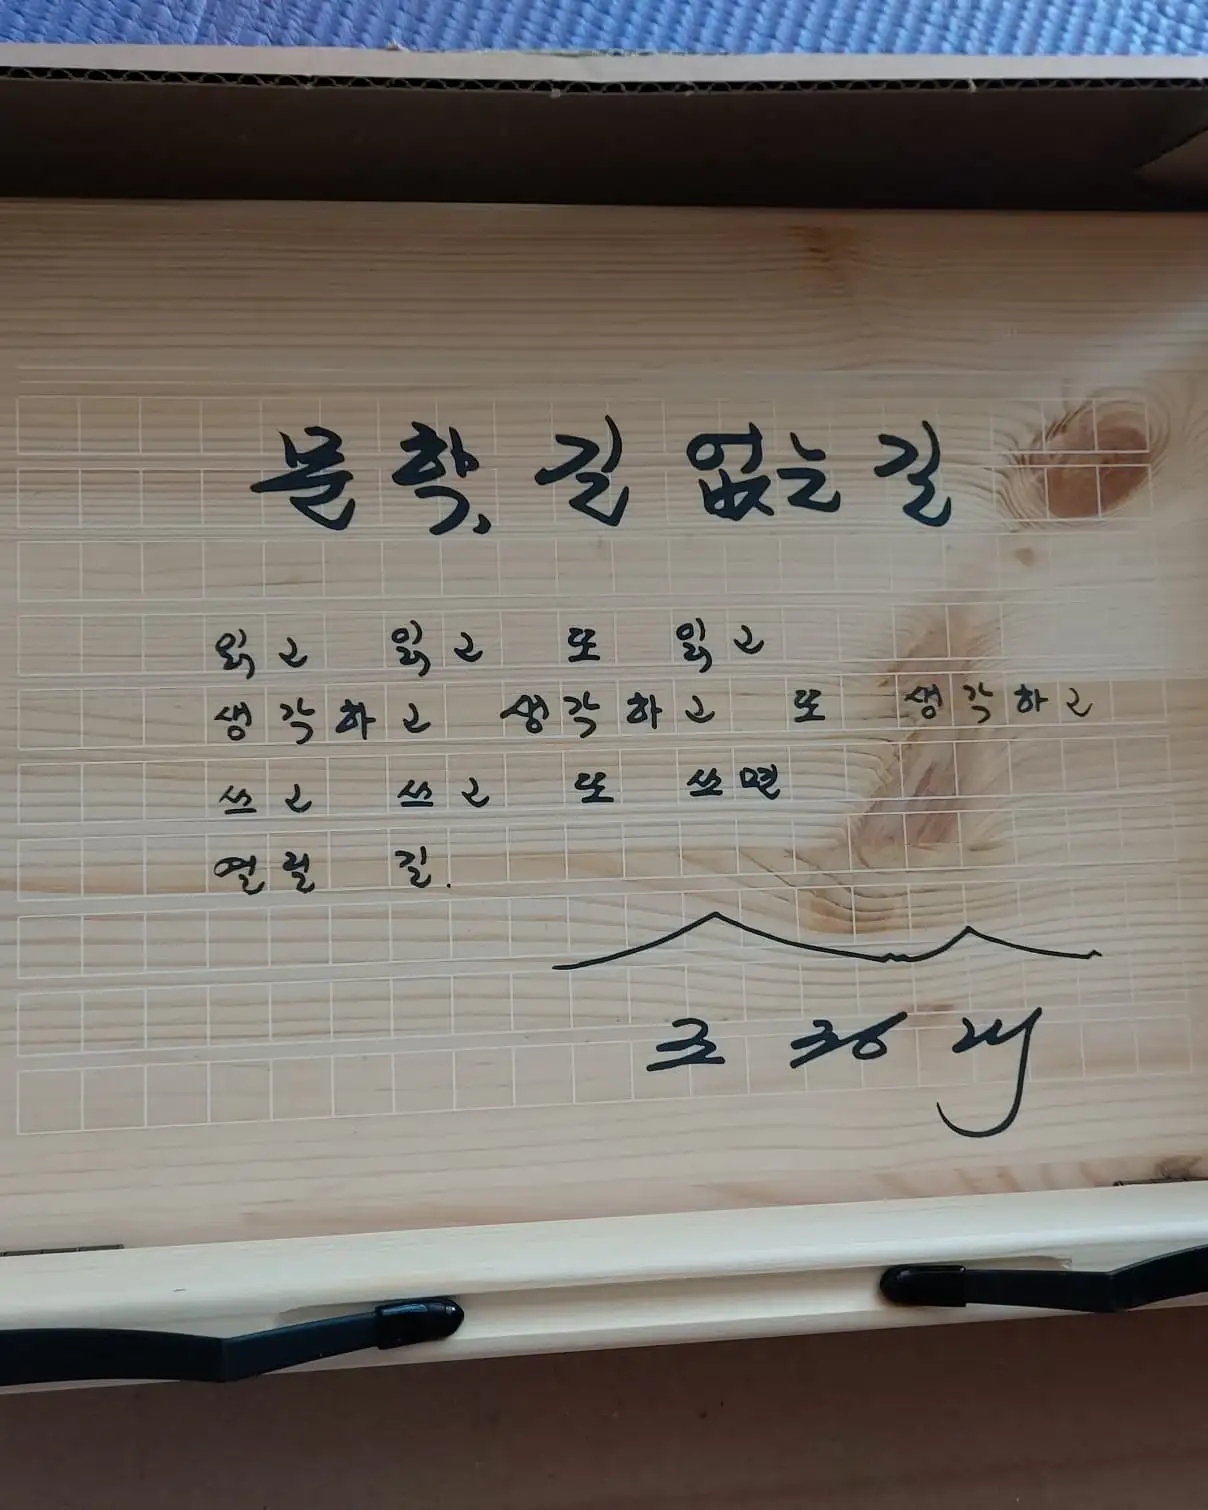 문학, 길 없는 길
읽고 읽고 또 읽고
생각하고 생각하고 또 생각하고
쓰고 쓰고 또 쓰면
열릴 길.
조정래